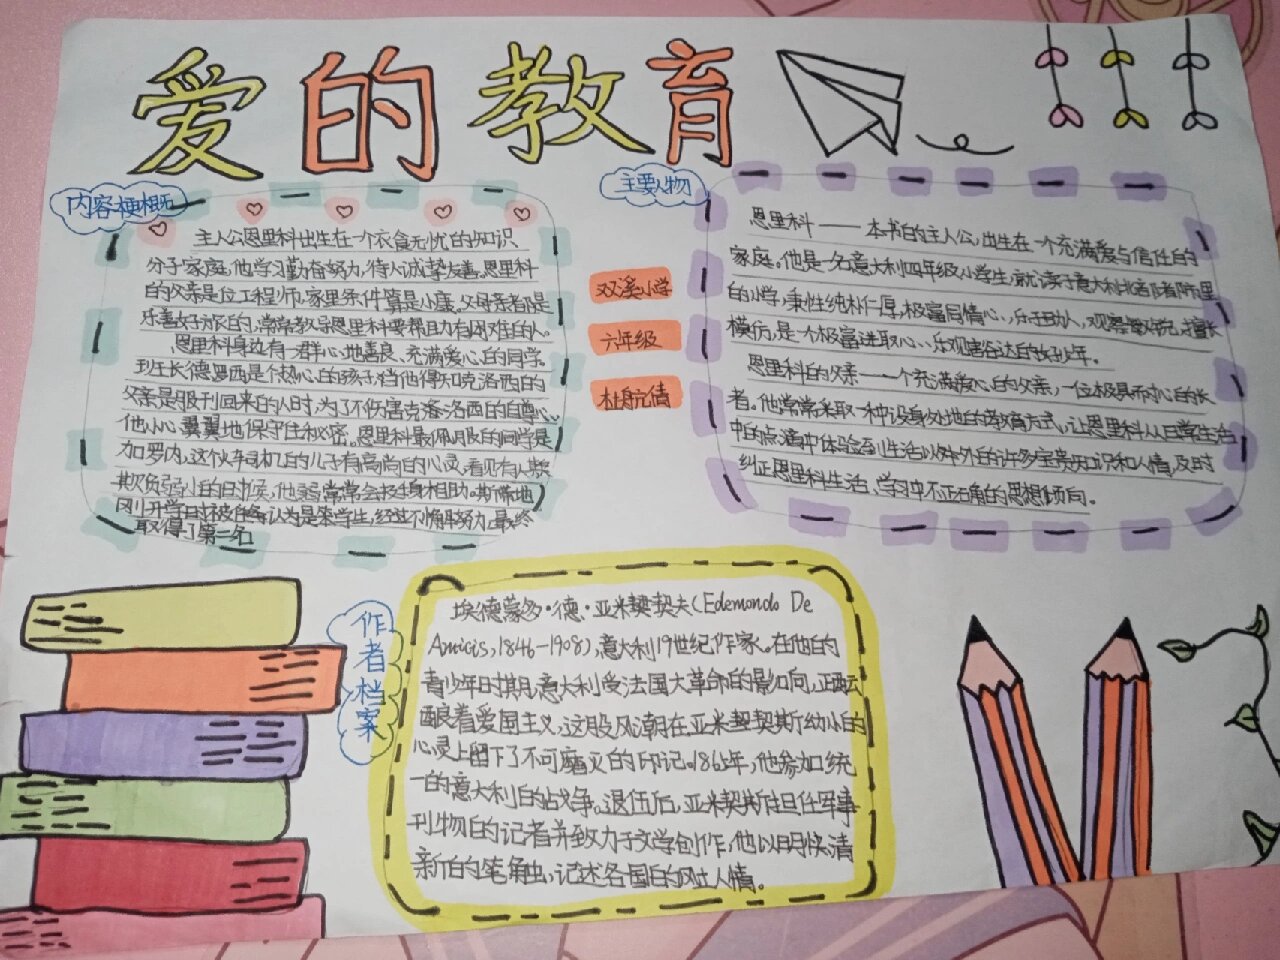 爱的教育
内容梗概
主人公恩里科出生在一个衣食无忧的知识
分子家庭,他学习勤奋努力,待人诚挚友善。恩里科
的父亲是位工程师,家里条件算是小康。父母亲都是
乐善好施的,常常教导恩里科要帮助有困难的人。
恩里科身边有一群心地善良、充满爱心的同学
班长德罗西是个热心的孩子,当他得知克洛西的
父亲是服刑回来的人时,为了不伤害克洛洛西的自尊心,
他小心翼翼地保守住秘密。恩里科最佩服的同学是
加罗内,这个火车司机的儿子有高尚的心灵,看见有人欺
欺负弱小的时候,他常常会挺身相助。斯带地
刚开学时被
认为是笨学生,经过不懈努力,最终
取得了第二名
主要人物
恩里科——本书的主人公,出生在一个充满爱与信任的
家庭。他是一名意大利四年级小学生,就读于意大利北部都灵
的小学,秉性纯朴仁厚,极富同情心、乐于助人,观察敏锐,擅长
模仿,是一个极富进取心、乐观豁达的好少年。
恩里科的父亲——一个充满爱心的父亲,一位极具耐心的长
者。他常常采取一种设身处地的教育方式,让恩里科从日常生活
中的点滴中体验到生活以外的许多宝贵知识和人情,及时
纠正恩里科生活、学习中不正确的思想倾向。
双溪小学
六年级
杜航倩
作者档案
埃德蒙多·德·亚米契契夫(Edemondo De
Amicis,1846-1908),意大利19世纪作家。在他的
青少年时期,意大利受法国大革命的影响,正酝
酿着爱国主义,这股风潮在亚米契契斯幼小的
心灵上留下了不可磨灭的印记。1866年,他参加统
一的意大利的战争。退伍后,亚米契斯担任军事
刊物的记者并致力于文学创作,他以明快清
新的笔触,记述各国的风土人情。